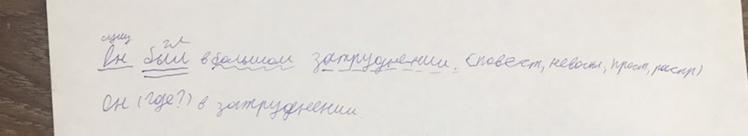 гл
Он был в большом затруднении. (повест, невоскл, прост, распр)
Он (где?) в затруднении